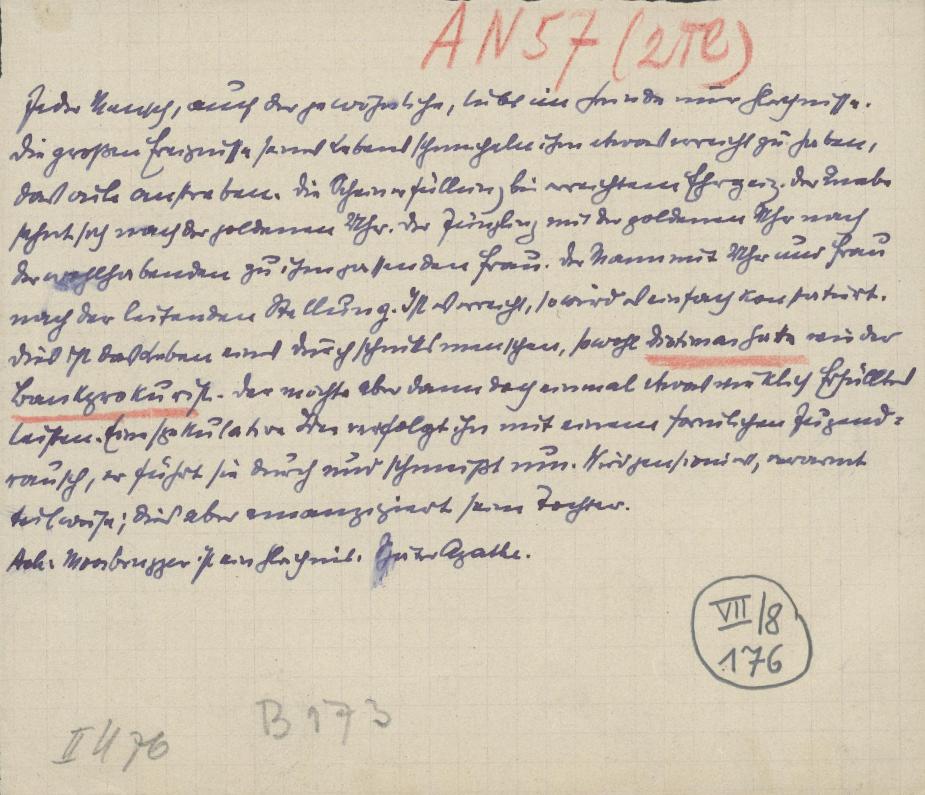 AN 57 (2 Tle)
Jeder Mensch, auch der gewöhnliche, liebt im Grunde nur Gleichnisse.
Die großen Ereignisse seines Lebens schmeicheln ihm etwas erreicht zu haben,
das alle anstreben. Die Scheinerfüllung bei erreichtem Ehrgeiz. Der Knabe
sehnt sich nach der goldenen Uhr. Der Jüngling mit der goldenen Uhr nach
der wohlhabenden zu ihm passenden Frau. Der Mann mit Uhr und Frau
nach der leitenden Stellung. Ist es erreicht, so wird es einfach konstatiert.
Dies ist das Leben eines Durchschnittsmenschen, sowohl wie der
Bankprokurist. Der möchte aber dann doch einmal etwas wirklich Erfülltes
leisten. Eine spekulative Idee verfolgt ihn mit einem förmlichen Jugend=
rausch, er führt sie durch und schmeißt um. Wird pensioniert, verarmt
teilweise; dies aber emanzipiert seine Tochter.
Ach: Moosbrugger ist ein Gleichnis. Agathe.
VII/8
176
B 173
II 4 76